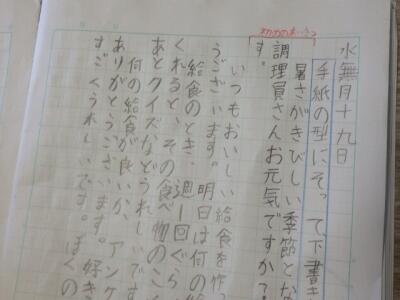 水無月十九日
手紙の型にそって、下書き
暑さがきびしい季節とな
調理員さんお元気ですか？
す。
いつもおいしい給食を作っ
うございます。明日は何の給
給食のとき、週１回ぐら
くれると、その食べ物のこ
あとクイズなどうれしいです
何の給食が良いか、アンケ
ありがとうございます。好き
すごくうれしいです。ぼくの